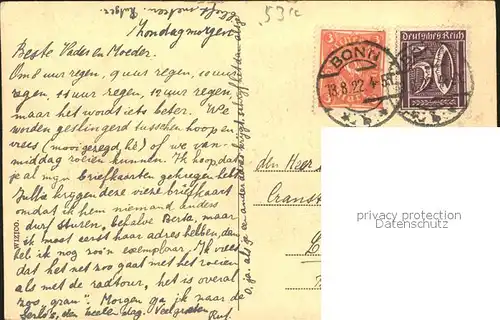 53 rc
Zondagmorgen
Beste Vader en Moeder.
Om 8 uur regen, 9 uur regen, 10 uur
regen, 11 uur regen, 12 uur regen,
maar het wordt iets beter. We
worden geslingerd tusschen hoop en
vrees (mooi gezegd, hè) of we van-
middag roeien kunnen. Ik hoop dat
je al mijn briefkaarten gekregen hebt
Jullie krijgen deze vieze briefkaart
omdat ik hem niemand anders
durf sturen, behalve Berta, maar
ik moet eerst haar adres hebben, dan
heb ik nog zoo'n exemplaar. Ik vrees
dat het net zoo gaat met het roeien
als met de radtour, "het is overal
zoo, grau". Morgen ga ik naar de
den heelen dag. Veel groeten
Rut.
O ja, als je een ander adres krijgt, schrijf het dan altijd
WIZICO.
Deutsches Reich
3
Mark
50
BONN
18.8.22. 4-5
* b *
den Heer
Cranst
privacy protection
Datenschutz